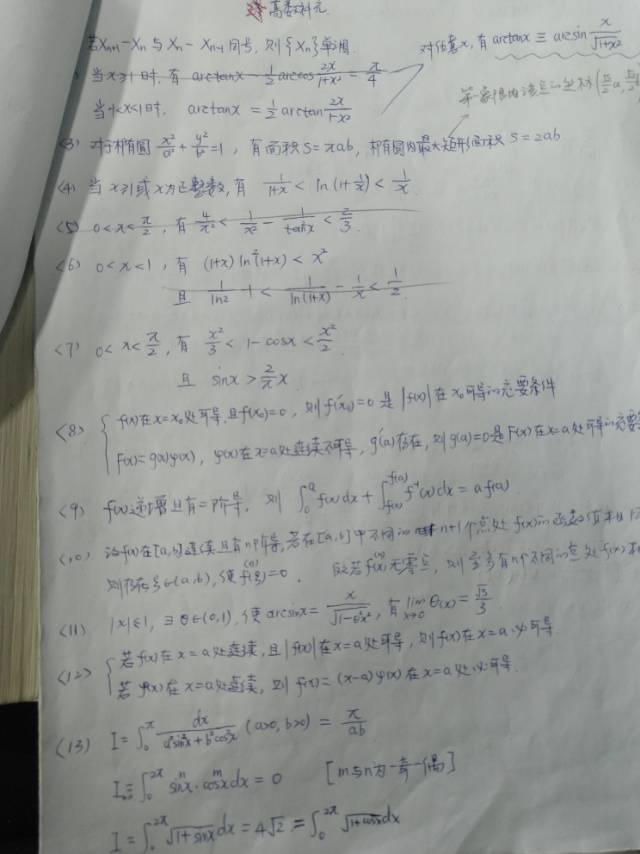 高数补充
若Xn+1-Xn 与 Xn-Xn-1同号, 则{Xn}单调.
对任意x, 有 arctanx ≡ arcsin x/√(1+x²)
当x≥1时, 有 arctanx - 1/2 arccos 2x/(1+x²) = π/4
当-1<x<1时, arctanx = 1/2 arctan 2x/(1-x²)
第一象限内该点的坐标(√2/2 a, √2/2 b)
<3) 对于椭圆 x²/a² + y²/b² = 1, 有面积 S=πab, 椭圆内最大矩形面积 S=2ab
<4) 当 x≥1或x为正整数, 有 1/(1+x) < ln(1+1/x) < 1/x.
<5) 0<x<π/2, 有 4/π² < 1/x² - 1/tan²x < 2/3.
<6) 0<x<1, 有 (1+x)ln²(1+x) < x²
且 1/ln2 - 1 < 1/ln(1+x) - 1/x < 1/2.
<7) 0<x<π/2, 有 x²/3 < 1-cosx < x²/2.
且 sinx > 2/π x.
<8) { f(x)在x=x₀处可导, 且f(x₀)=0, 则f'(x₀)=0 是 |f(x)| 在x₀可导的充要条件
F(x)=g(x)φ(x), φ(x)在x=a处连续不可导, g'(a)存在, 则g(a)=0是F(x)在x=a处可导的充要
<9) f(x)递增且有二阶导, 则 ∫₀ᵃ f(x)dx + ∫ f⁻¹(x)dx = a f(a)
<10) 设f(x)在[a,b]连续且有n阶导, 若在[a,b]中不同的n+1个点处f(x)的函数值
则存在ξ∈(a,b), 使f⁽ⁿ⁾(ξ)=0. 反若f⁽ⁿ⁾(x)无零点, 则至多有n个不同的点处f(x)
<11) |x|≤1, ∃θ∈(0,1), 使 arcsinx = x/√(1-θ²x²), 有 lim x→0 θ(x) = √3/3
<12) { 若f(x)在x=a处连续, 且|f(x)|在x=a处可导, 则f(x)在x=a必可导.
若φ(x)在x=a处连续, 则f(x)=(x-a)φ(x)在x=a处必可导.
(13) I = ∫₀^π dx/(a²sin²x+b²cos²x) (a>0, b>0) = π/ab
I = ∫₀^2π sinⁿx·cosᵐx dx = 0 [m与n为一奇一偶]
I = ∫₀^2π √(1+sinx) dx = 4√2 = ∫₀^2π √(1+cosx) dx